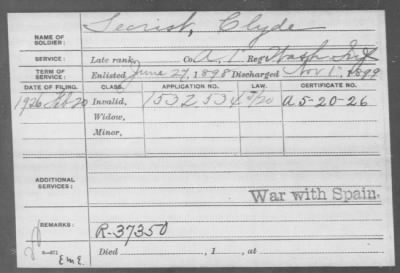 NAME OF SOLDIER: Searish, Clyde
SERVICE: Late rank, Co. A, 1" Reg Wash Inf
TERM OF SERVICE: Enlisted June 27, 1898 Discharged Nov 1", 1899
DATE OF FILING. CLASS. APPLICATION NO. LAW. CERTIFICATE NO.
1926 Feb 20 Invalid, 1532534 A 5-20-26
Widow,
Minor,
ADDITIONAL SERVICES:
War with Spain.
REMARKS: R-37350
EmE.
Died , 1 , at